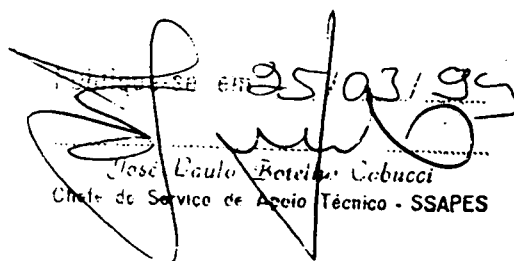 Publique-se em 25/03/94
José Paulo Botelho Cobucci
Chefe do Serviço de Apoio Técnico - SSAPES